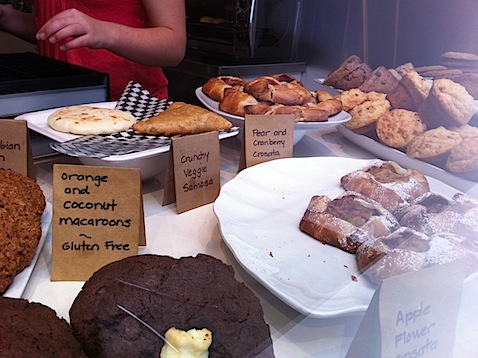 orange
and
coconut
macaroons
~
Gluten Free
Crunchy
Veggie
Samosa
Pear and
Cranberry
Crosata
Apple
Flower